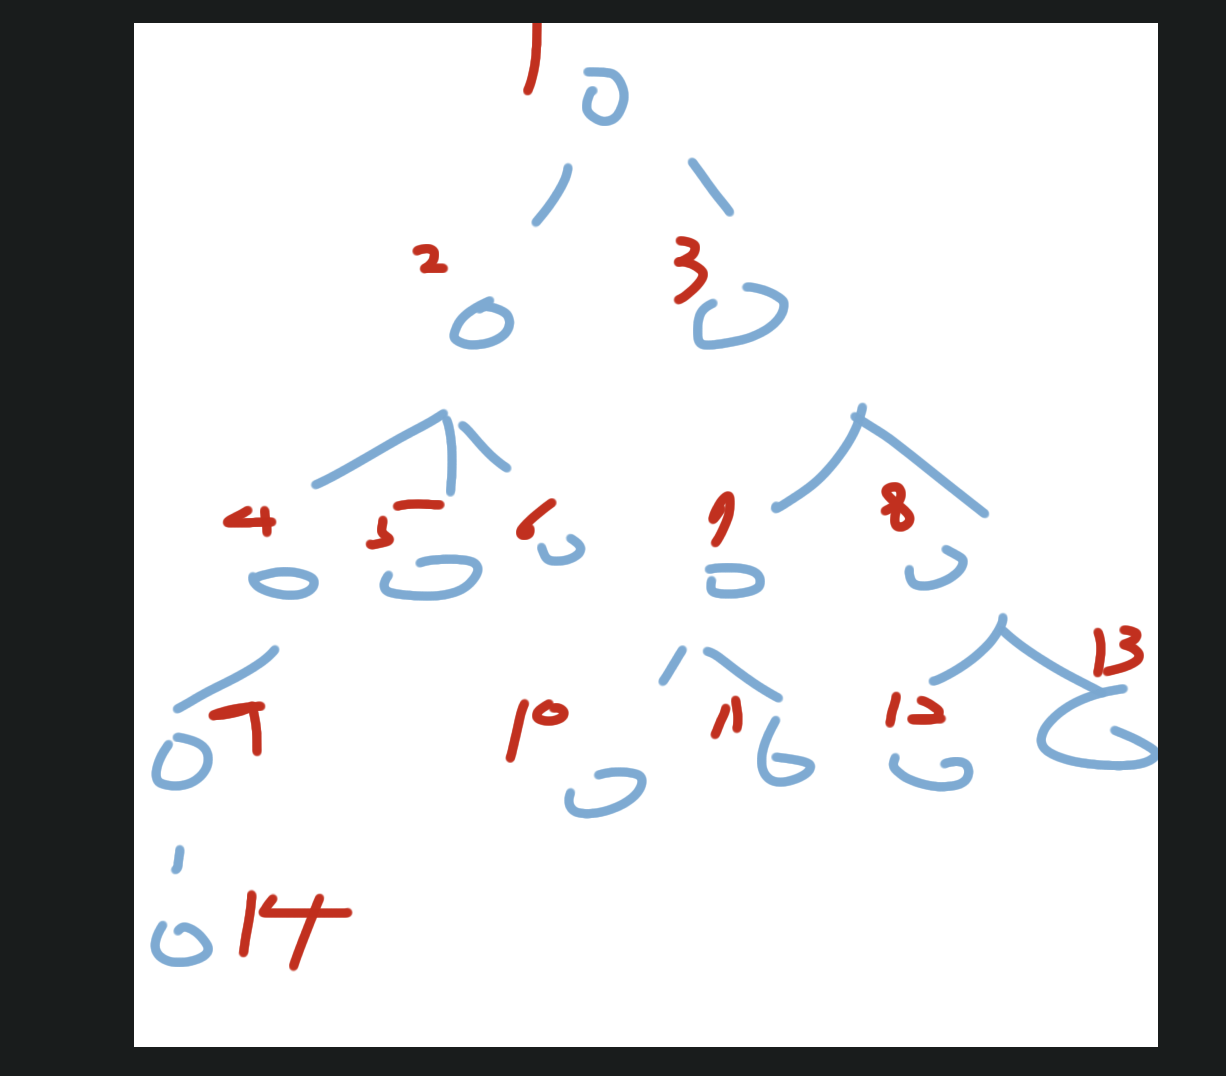 1
2 3
4 5 6 9 8
7 10 11 12 13
14